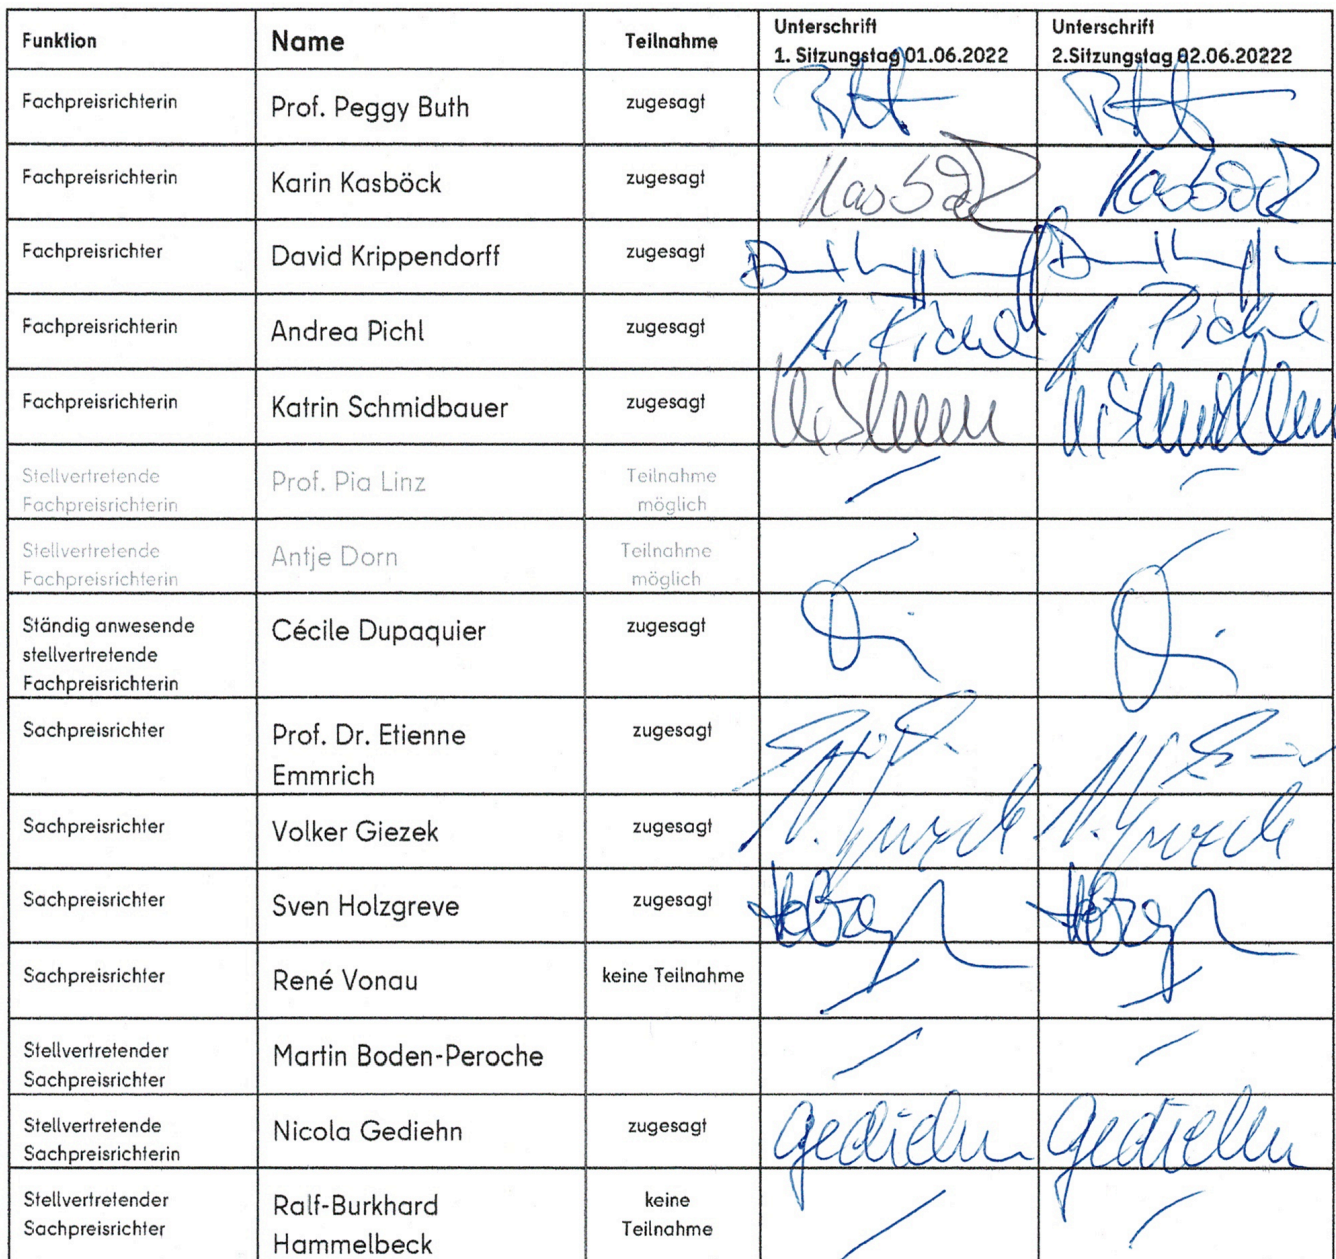 Funktion Name Teilnahme Unterschrift 1. Sitzungstag 01.06.2022 Unterschrift 2.Sitzungstag 02.06.20222
Fachpreisrichterin Prof. Peggy Buth zugesagt
Fachpreisrichterin Karin Kasböck zugesagt Kasböck Kasböck
Fachpreisrichter David Krippendorff zugesagt
Fachpreisrichterin Andrea Pichl zugesagt A. Pichl A. Pichl
Fachpreisrichterin Katrin Schmidbauer zugesagt
Stellvertretende Fachpreisrichterin Prof. Pia Linz Teilnahme möglich
Stellvertretende Fachpreisrichterin Antje Dorn Teilnahme möglich
Ständig anwesende stellvertretende Fachpreisrichterin Cécile Dupaquier zugesagt
Sachpreisrichter Prof. Dr. Etienne Emmrich zugesagt
Sachpreisrichter Volker Giezek zugesagt
Sachpreisrichter Sven Holzgreve zugesagt
Sachpreisrichter René Vonau keine Teilnahme
Stellvertretender Sachpreisrichter Martin Boden-Peroche
Stellvertretende Sachpreisrichterin Nicola Gediehn zugesagt Gediehn Gediehn
Stellvertretender Sachpreisrichter Ralf-Burkhard Hammelbeck keine Teilnahme